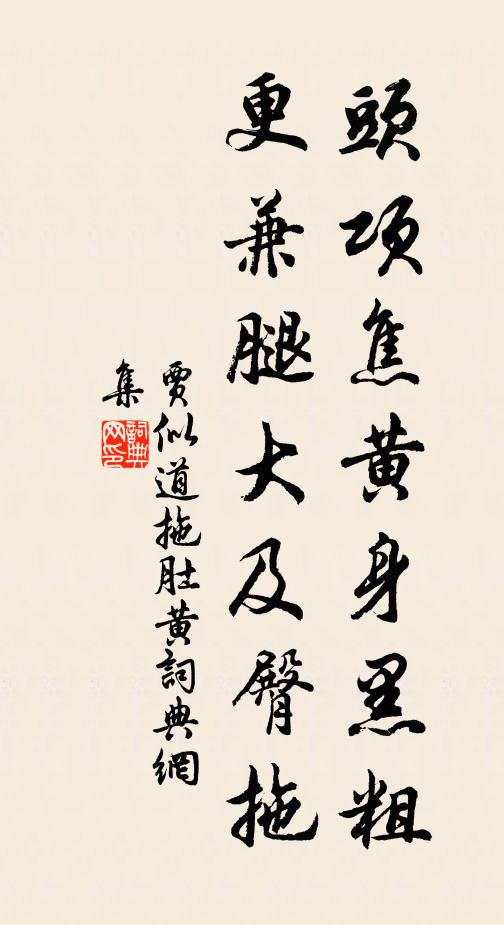 頭項焦黃身黑粗
更兼腿大及臀拖
賈似道拖肚黃詞典網
集
詞典
网印